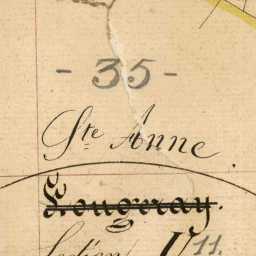 - 35 -
Ste Anne.
Longeray.
Section V 11.